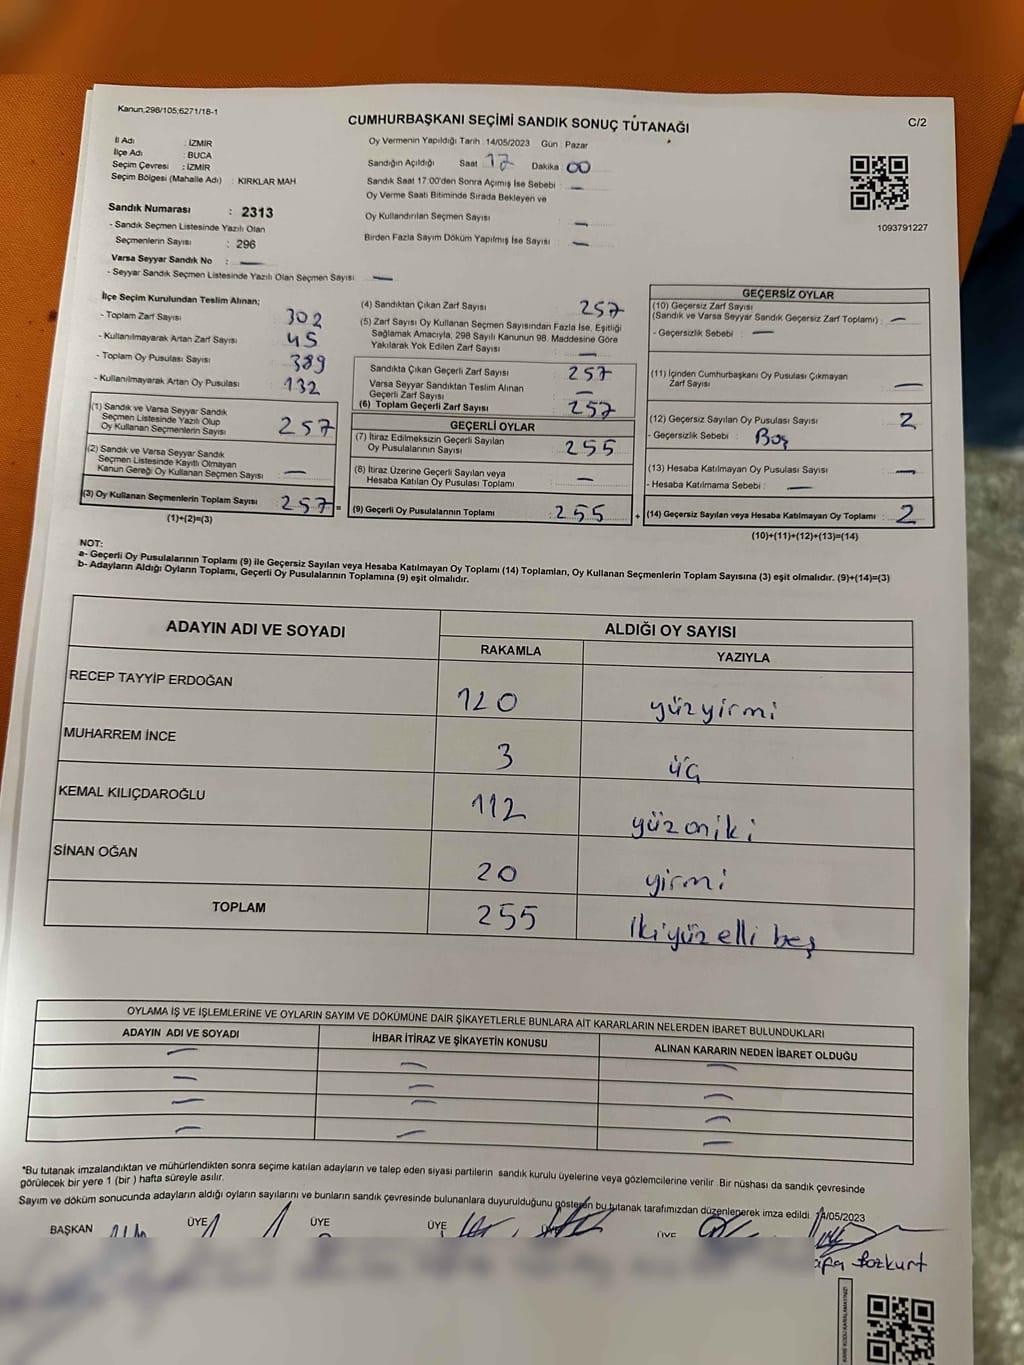 Kanun;298/105;6271/18-1
C/2
CUMHURBAŞKANI SEÇİMİ SANDIK SONUÇ TUTANAĞI
İl Adı : İZMİR
İlçe Adı : BUCA
Seçim Çevresi : İZMİR
Seçim Bölgesi (Mahalle Adı) : KIRKLAR MAH
Sandık Numarası : 2313
- Sandık Seçmen Listesinde Yazılı Olan
Seçmenlerin Sayısı : 296
Varsa Seyyar Sandık No : —
- Seyyar Sandık Seçmen Listesinde Yazılı Olan Seçmen Sayısı : —
Oy Vermenin Yapıldığı Tarih : 14/05/2023 Gün : Pazar
Sandığın Açıldığı Saat 17 Dakika : 00
Sandık Saat 17:00'den Sonra Açımış İse Sebebi : —
Oy Verme Saati Bitiminde Sırada Bekleyen ve
Oy Kullandırılan Seçmen Sayısı : —
Birden Fazla Sayım Döküm Yapılmış İse Sayısı : —
1093791227
İlçe Seçim Kurulundan Teslim Alınan;
- Toplam Zarf Sayısı : 302
- Kullanılmayarak Artan Zarf Sayısı : 45
- Toplam Oy Pusulası Sayısı : 389
- Kullanılmayarak Artan Oy Pusulası : 132
(1) Sandık ve Varsa Seyyar Sandık
Seçmen Listesinde Yazılı Olup
Oy Kullanan Seçmenlerin Sayısı : 257
(2) Sandık ve Varsa Seyyar Sandık
Seçmen Listesinde Kayıtlı Olmayan
Kanun Gereği Oy Kullanan Seçmen Sayısı : —
(3) Oy Kullanan Seçmenlerin Toplam Sayısı : 257 =
(1)+(2)=(3)
(4) Sandıktan Çıkan Zarf Sayısı 257
(5) Zarf Sayısı Oy Kullanan Seçmen Sayısından Fazla İse, Eşitliği
Sağlamak Amacıyla, 298 Sayılı Kanunun 98. Maddesine Göre
Yakılarak Yok Edilen Zarf Sayısı : —
Sandıkta Çıkan Geçerli Zarf Sayısı : 257
Varsa Seyyar Sandıktan Teslim Alınan
Geçerli Zarf Sayısı : —
(6) Toplam Geçerli Zarf Sayısı : 257
GEÇERLİ OYLAR
(7) İtiraz Edilmeksizin Geçerli Sayılan
Oy Pusulalarının Sayısı : 255
(8) İtiraz Üzerine Geçerli Sayılan veya
Hesaba Katılan Oy Pusulası Toplamı : —
(9) Geçerli Oy Pusulalarının Toplamı : 255 +
GEÇERSİZ OYLAR
(10) Geçersiz Zarf Sayısı
(Sandık ve Varsa Seyyar Sandık Geçersiz Zarf Toplamı) : —
- Geçersizlik Sebebi : —
(11) İçinden Cumhurbaşkanı Oy Pusulası Çıkmayan
Zarf Sayısı : —
(12) Geçersiz Sayılan Oy Pusulası Sayısı : 2
- Geçersizlik Sebebi : Boş
(13) Hesaba Katılmayan Oy Pusulası Sayısı : —
- Hesaba Katılmama Sebebi : —
(14) Geçersiz Sayılan veya Hesaba Katılmayan Oy Toplamı : 2
(10)+(11)+(12)+(13)=(14)
NOT:
a- Geçerli Oy Pusulalarının Toplamı (9) ile Geçersiz Sayılan veya Hesaba Katılmayan Oy Toplamı (14) Toplamları, Oy Kullanan Seçmenlerin Toplam Sayısına (3) eşit olmalıdır. (9)+(14)=(3)
b- Adayların Aldığı Oyların Toplamı, Geçerli Oy Pusulalarının Toplamına (9) eşit olmalıdır.
ADAYIN ADI VE SOYADI
ALDIĞI OY SAYISI
RAKAMLA YAZIYLA
RECEP TAYYİP ERDOĞAN 120 yüzyirmi
MUHARREM İNCE 3 üç
KEMAL KILIÇDAROĞLU 112 yüzoniki
SİNAN OĞAN 20 yirmi
TOPLAM 255 İkiyüz elli beş
OYLAMA İŞ VE İŞLEMLERİNE VE OYLARIN SAYIM VE DÖKÜMÜNE DAİR ŞİKAYETLERLE BUNLARA AİT KARARLARIN NELERDEN İBARET BULUNDUKLARI
ADAYIN ADI VE SOYADI İHBAR İTİRAZ VE ŞİKAYETİN KONUSU ALINAN KARARIN NEDEN İBARET OLDUĞU
— — —
— — —
— — —
— — —
*Bu tutanak imzalandıktan ve mühürlendikten sonra seçime katılan adayların ve talep eden siyasi partilerin sandık kurulu üyelerine veya gözlemcilerine verilir. Bir nüshası da sandık çevresinde
görülecek bir yere 1 (bir ) hafta süreyle asılır.
Sayım ve döküm sonucunda adayların aldığı oyların sayılarını ve bunların sandık çevresinde bulunanlara duyurulduğunu gösteren bu tutanak tarafımızdan düzenlenerek imza edildi. 14/05/2023
BAŞKAN ÜYE ÜYE ÜYE ÜYE
Bozkurt